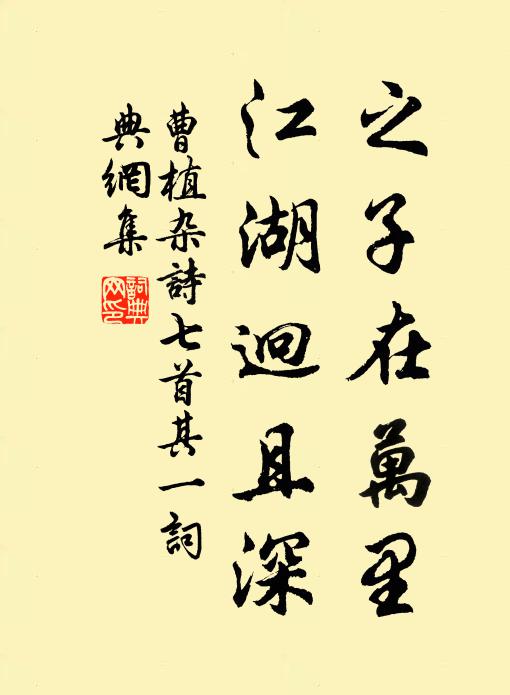 之子在萬里
江湖迥且深
曹植杂詩七首其一詞
典網集
詞典
网印